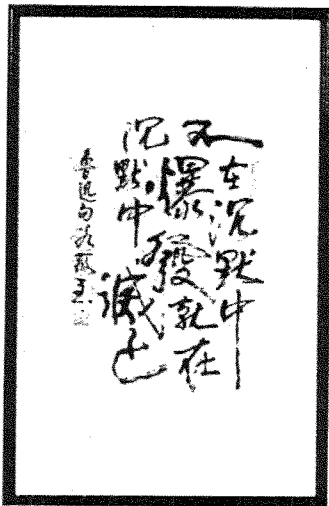 不在沉默中
爆發就在
沉默中滅亡
魯迅句